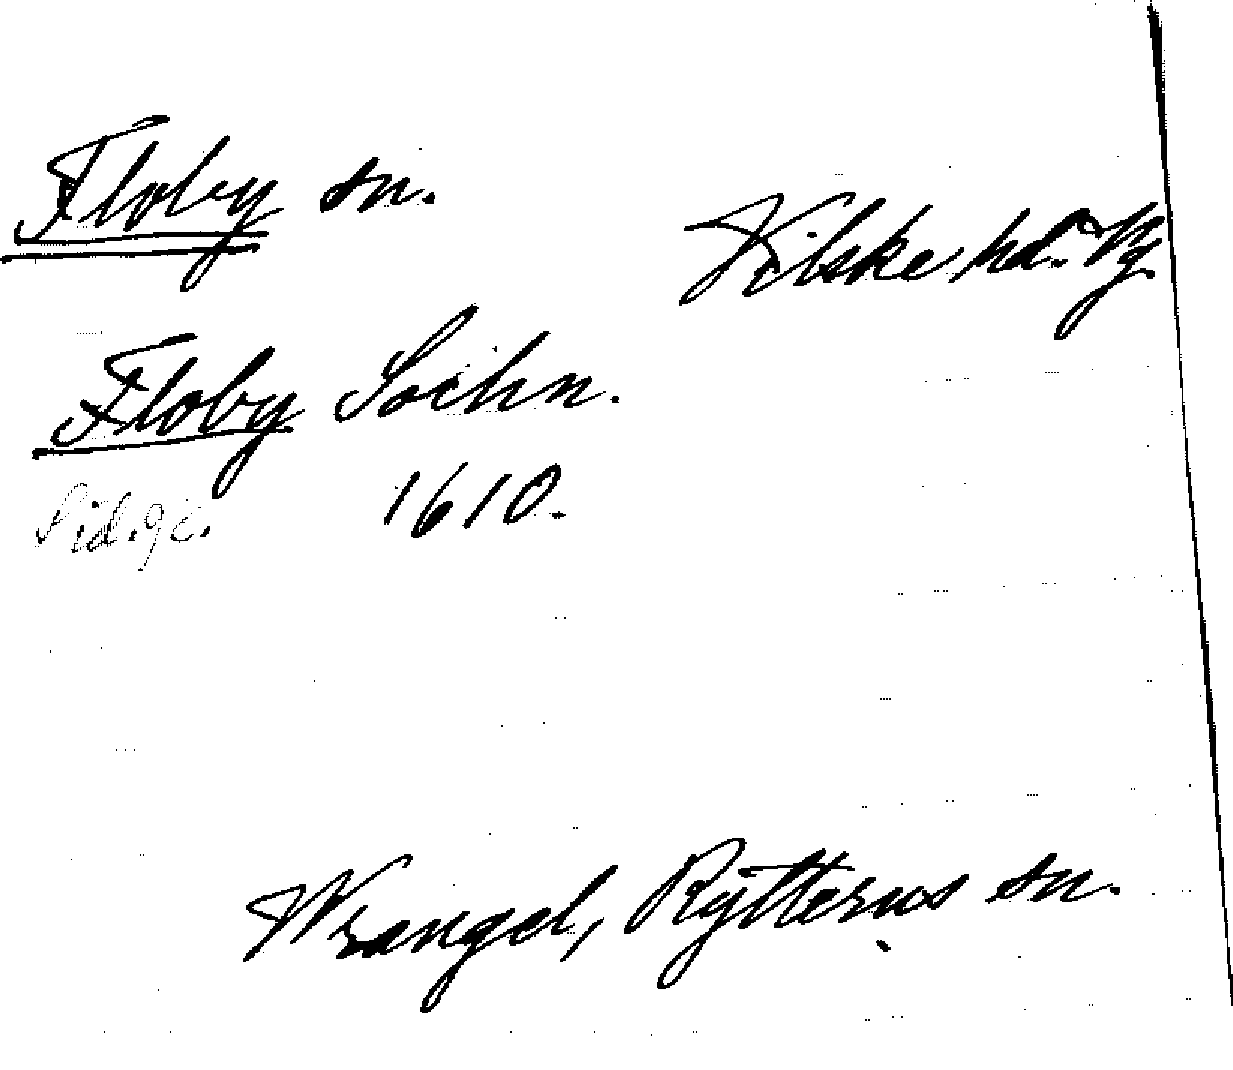 Floby sn.
Vilske hd. Vg
Floby Sochn.
Sid. 9c. 1610.
Wrangel, Rytterns sn.